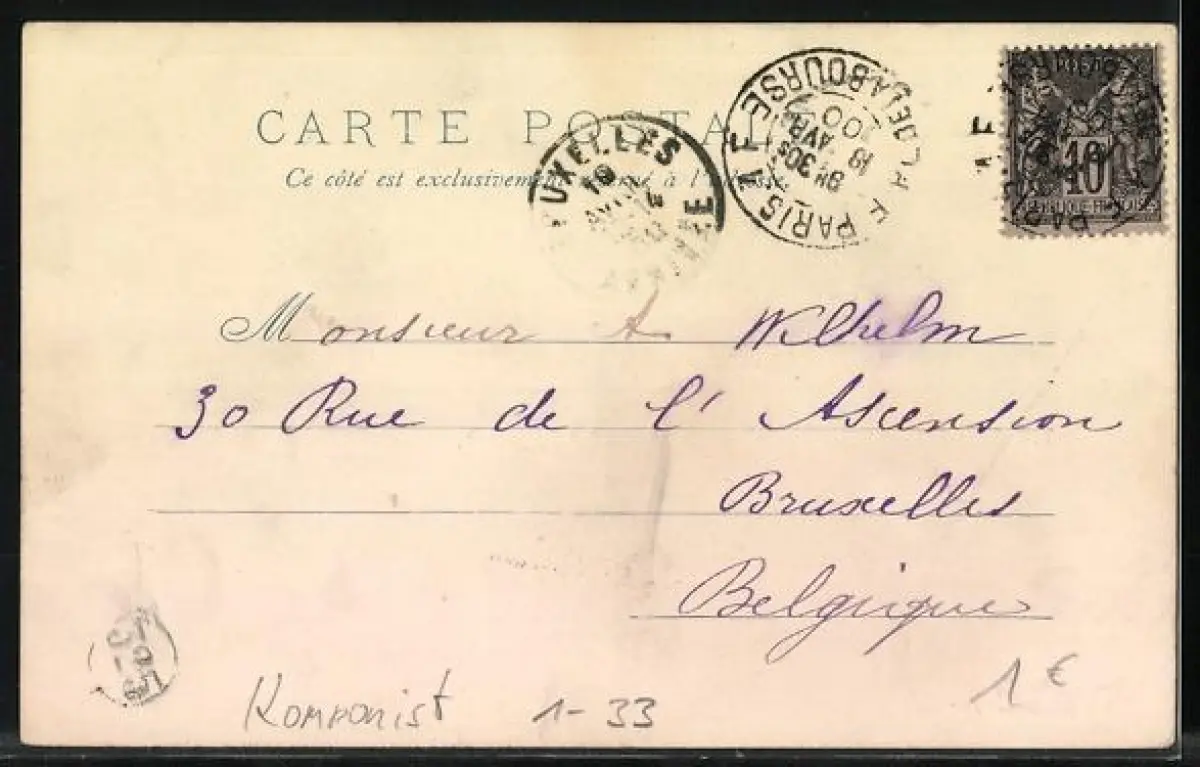 CARTE POSTALE
Ce côté est exclusivement réservé à l'adresse
PARIS PL. DE LA BOURSE
8H 30S
18 AVR
00
UXELLES
19
10
Monsieur A Wilhelm
30 Rue de l'Ascension
Bruxelles
Belgique
Komponist 1-33
1€